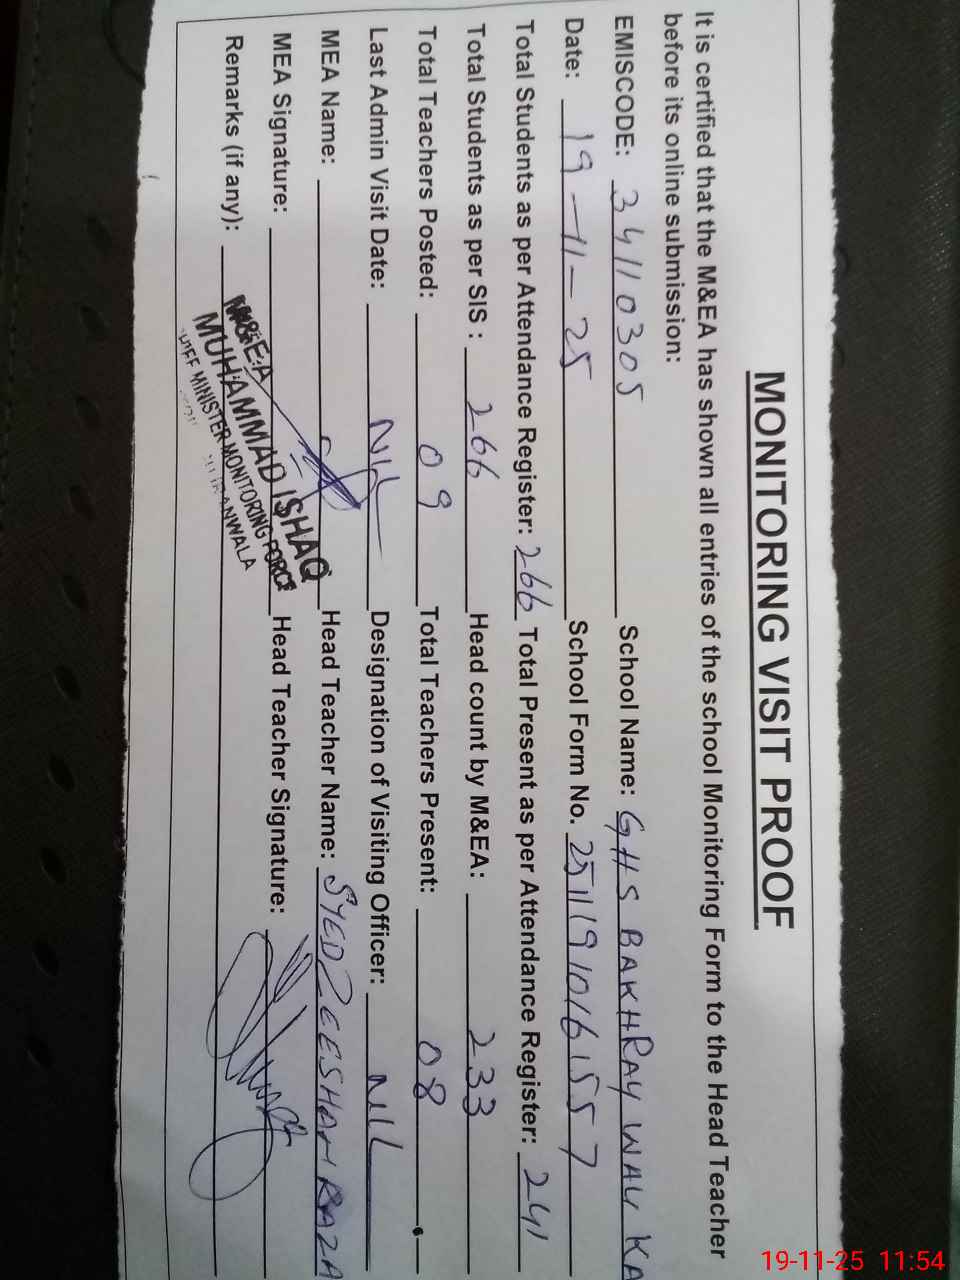 MONITORING VISIT PROOF
It is certified that the M&EA has shown all entries of the school Monitoring Form to the Head Teacher
before its online submission:
EMISCODE: 34110305 School Name: GHS BAKHRAY WALI KA
Date: 19-11-25 School Form No. 251119101616557
Total Students as per Attendance Register: 266 Total Present as per Attendance Register: 241
Total Students as per SIS : 266 Head count by M&EA: 233
Total Teachers Posted: 09 Total Teachers Present: 08
Last Admin Visit Date: NIL Designation of Visiting Officer: NIL
MEA Name: Head Teacher Name: SYED ZEESHAN RAZA
MEA Signature: Head Teacher Signature:
Remarks (if any):
M&E.A
MUHAMMAD ISHAQ
MINISTER MONITORING FORCE
19-11-25 11:54